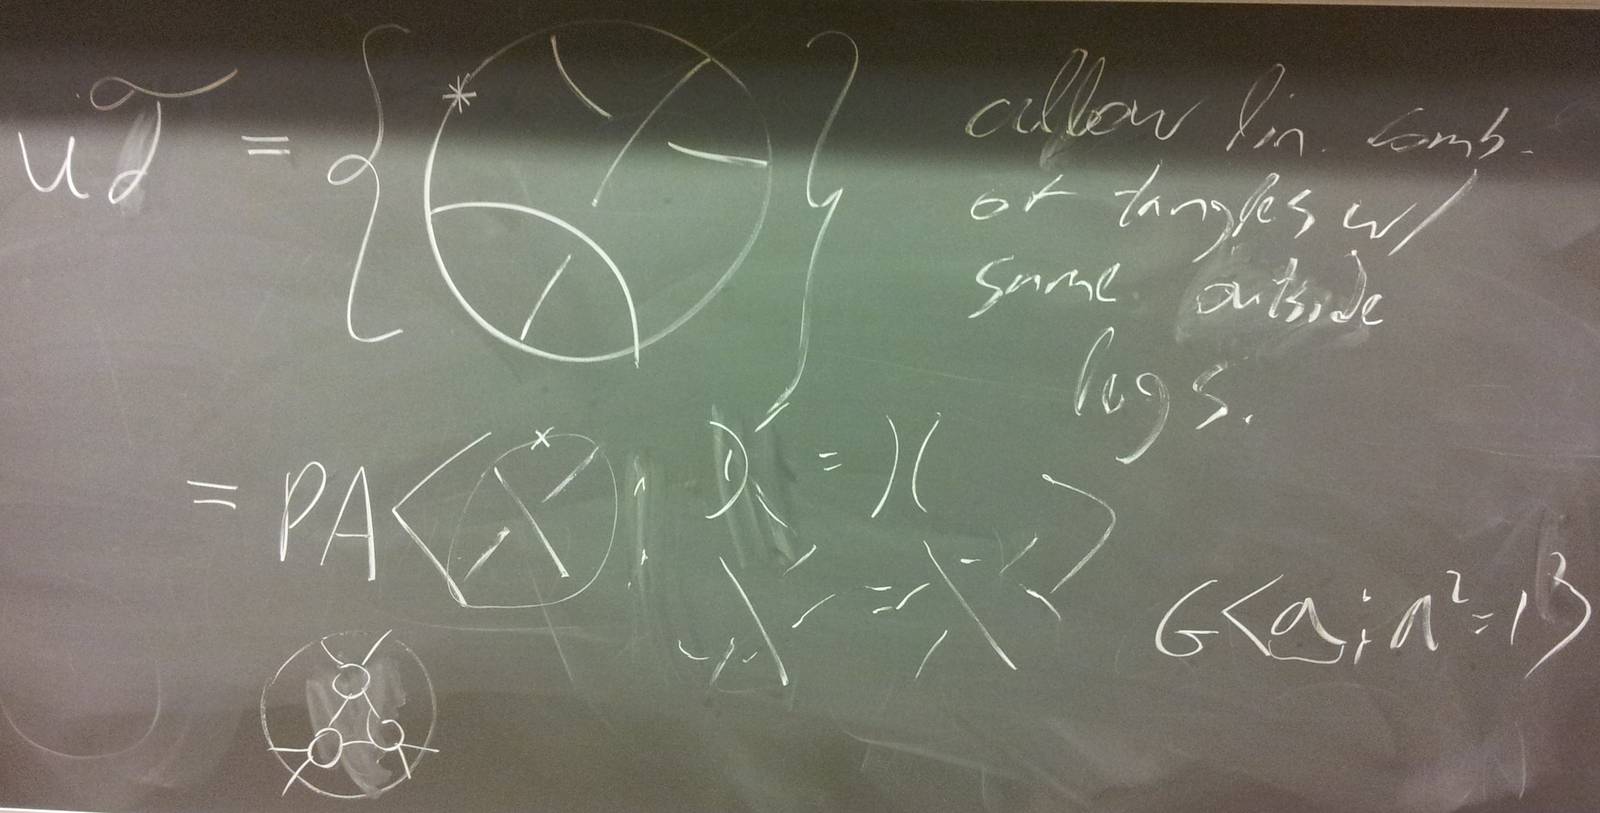 uT = { * }
allow lin. comb.
of tangles w/
same outside
legs.
= PA < × ; = ; = >
G<a; a²=1>